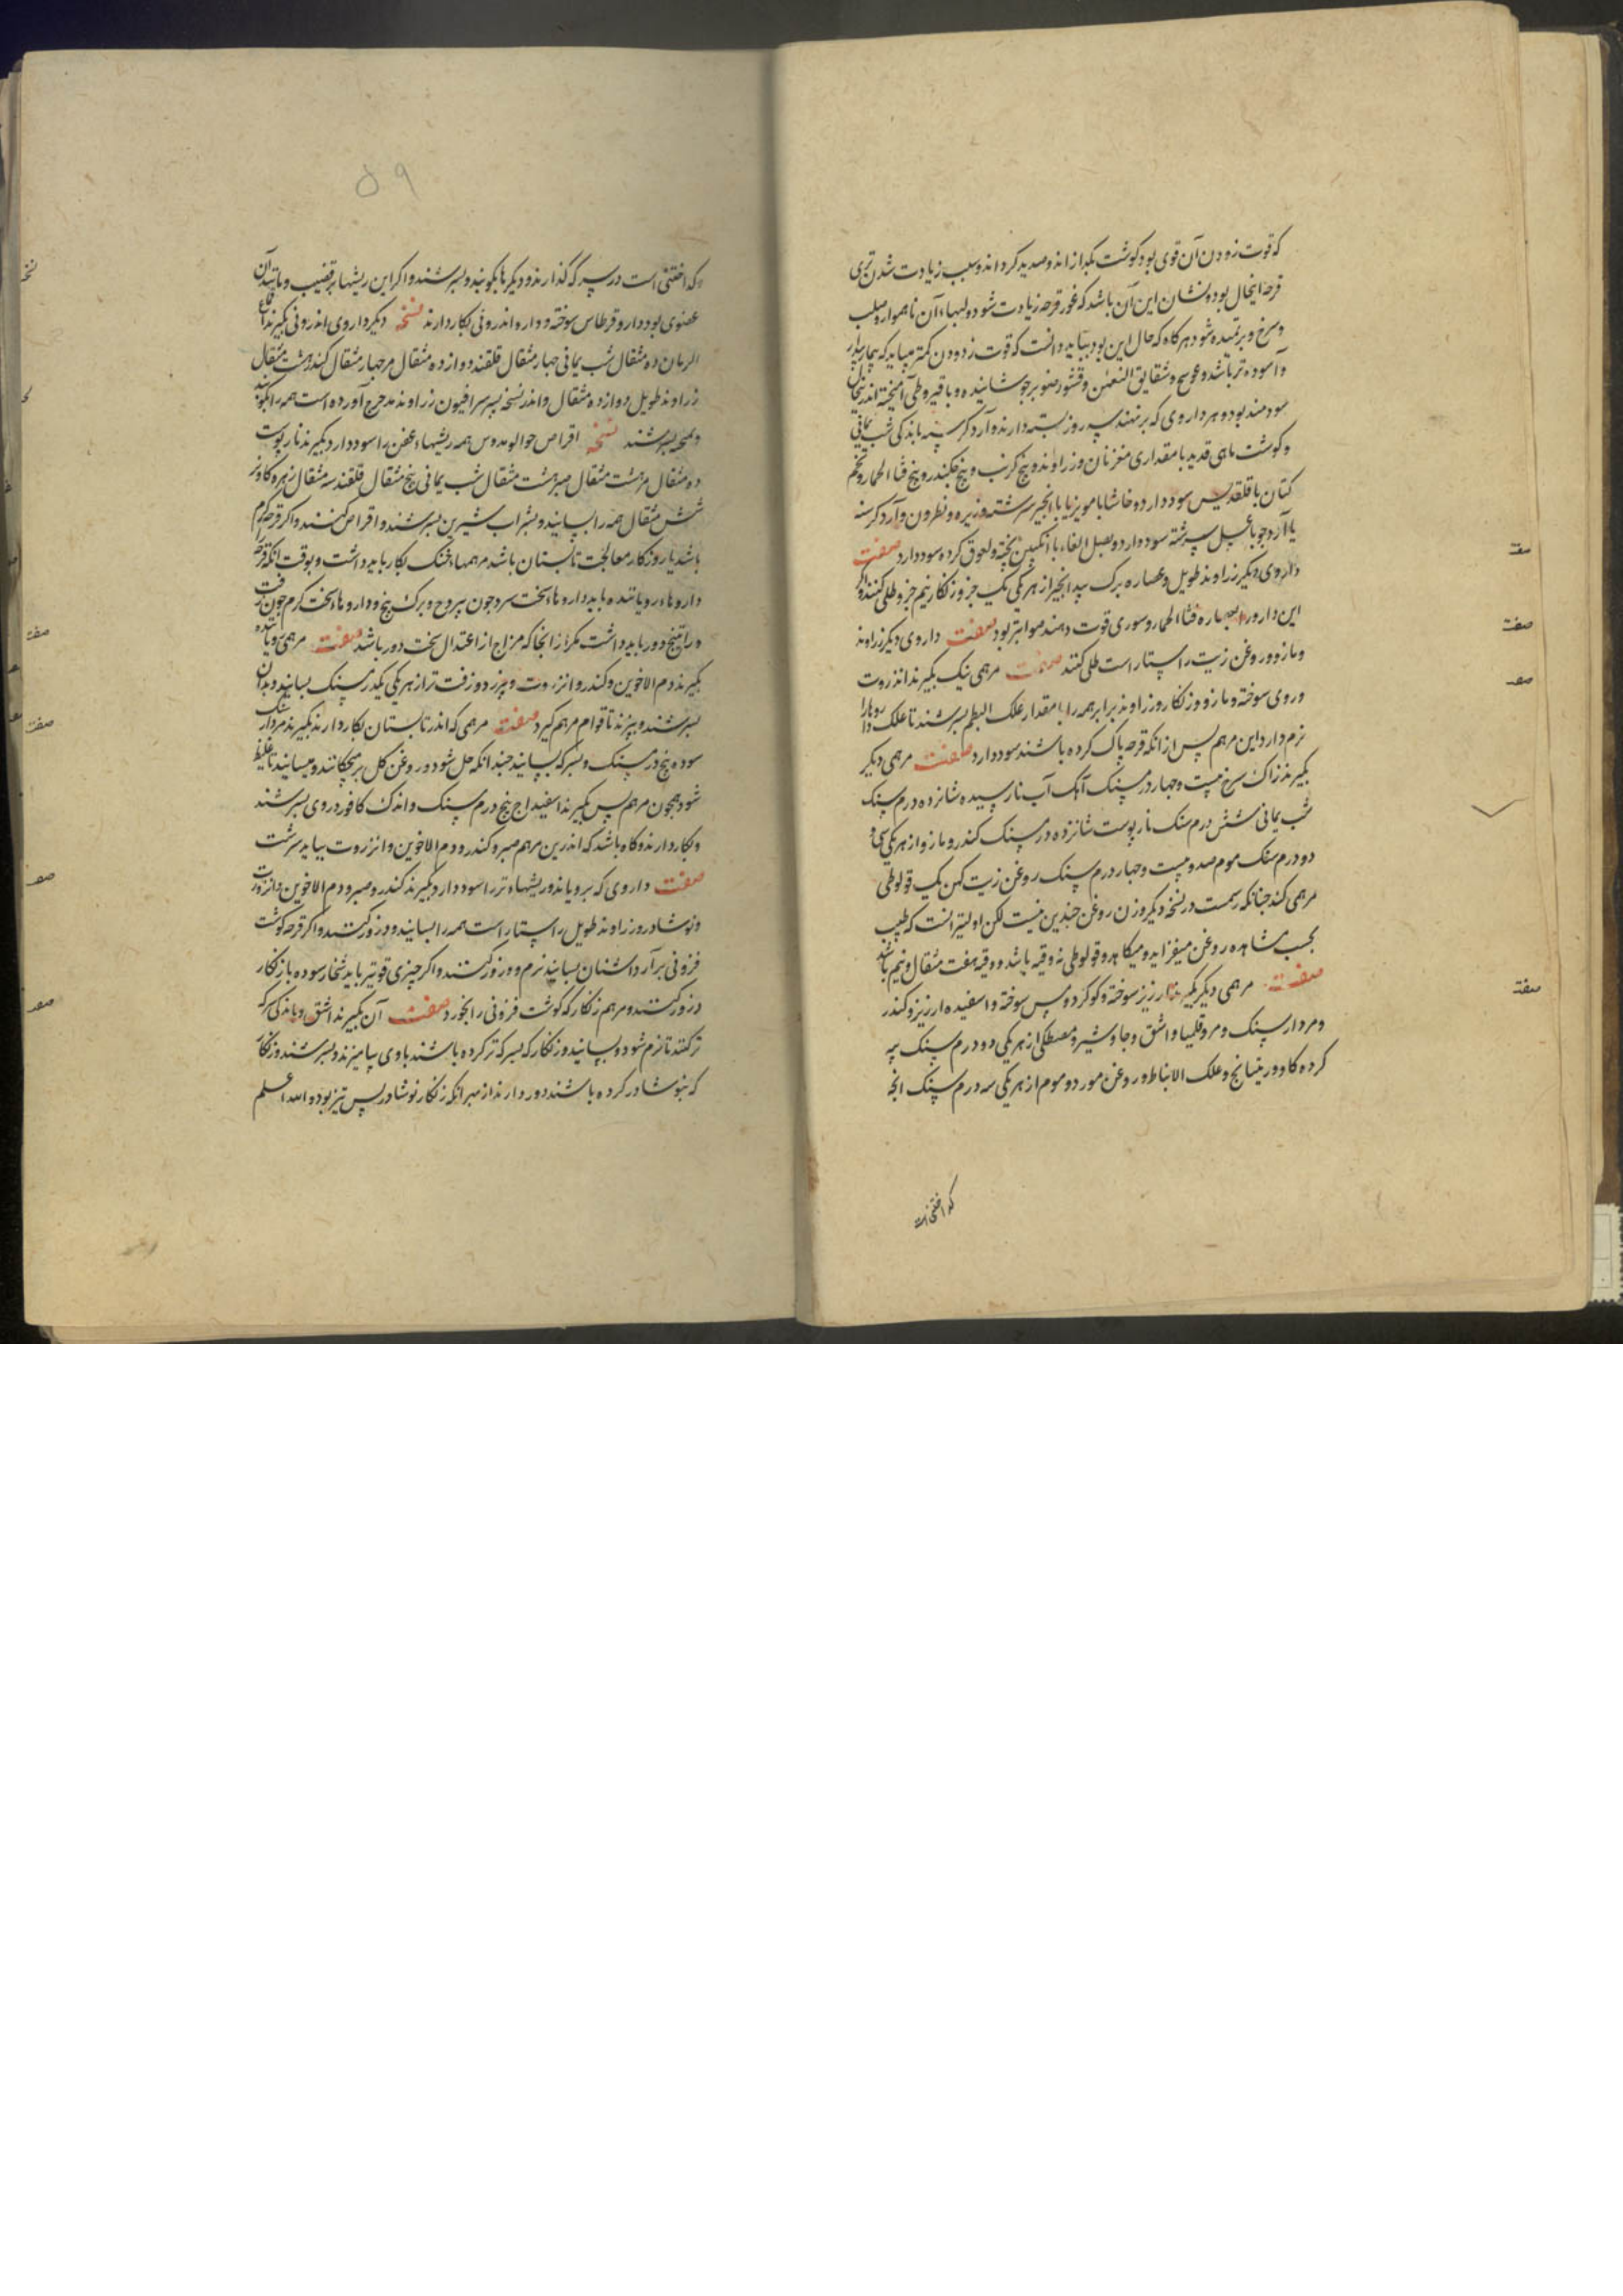 که قوت زدودن آن قوی بود و گوشت بگدازاند و صدید گرداند و سبب زیادت شدن تری
قرحه این حال بود و نشان این آن باشد که غور قرحه زیادت شود و لبهاء آن ناهموار و صلب
و سرخ و برتمیده شود هرگاه که حال این بود بباید دانست که قوت زدودن کمتر میباید که بیمار
و آسوده تر باشد و عوسج و شقایق النعمن و قشور صنوبر جوشانیده و با قیروطی آمیخته اندر
سودمند بود و هر داروی که برنهند سه روز بسته دارند و آرد کرسنه باندکی شب یمانی
و گوشت ماهی قدید با مقداری مغز نان و زراوند و بیخ کرنب و بیخ قثاء الحمار و تخم
کتان با قلقدیس سود دارد و خاشا با مویز یا با انجیر سرشته و زیره و نطرون و آرد کرسنه
یا آرد جو با عسل سرشته سود دارد و بصل الفاء با انگبین پخته و لعوق کرده سود دارد صفت
داروی دیگر زراوند طویل و عصاره برگ بید انجیر از هر یکی یک جزو زنگار نیم جزو طلی کنند و اگر
این دارو را بعصاره قثاء الحمار و سوری قوت دهند صوابتر بود صفت داروی دیگر زراوند
و مازو و روغن زیت راستاراست طلی کنند صفت مرهمی نیک بگیرند انذروت
و روی سوخته و مازو و زنگار و زراوند برابر همه را با مقدار علک البطم بسرشند تا علک داروها را
نرم دارد این مرهم پس از انکه قرحه پاک کرده باشند سود دارد صفت مرهمی دیگر
بگیرند زاک سرخ بیست و چهار درم سنگ آهک آب نارسیده شانزده درم سنگ
شب یمانی شش درم سنگ نار پوست شانزده درم سنگ کندر و مازو از هر یکی سی و
دو درم سنگ موم صد و بیست و چهار درم سنگ روغن زیت کهن یک قوطولی
مرهمی کنند چنانکه رسمست در نسخه دیگر وزن روغن چندین نیست لکن اولیتر آنست که طبیب
بحسب مشاهده روغن میفزاید و میکاهد و قوطولی نه وقیه باشد و وقیه هفت مثقال و نیم باشد
صفت مرهمی دیگر بگیرند ارزیز سوخته و گوگرد و مس سوخته و اسفیده ارزیز و کندر
و مردارسنگ و مر و قلیمیا و اشق و جاوشیر و مصطکی از هر یکی دو درم سنگ پیه
گرده گاو و ریتیانج و علک الانباط و روغن مورد و موم از هر یکی سه درم سنگ انچه
که اختنی است
که اختنی است در سرکه گذارند و دیگرها بکوبند و بسرشند و اگر این ریشها بر قضیب و مانند آن
عضوی بود دارو قرطاس سوخته و دارو اندرونی بکار دارند نسخه دیگر داروی اندرونی بگیرند اقماع
الرمان ده مثقال شب یمانی چهار مثقال قلقند دوازده مثقال مر چهار مثقال کندر هشت مثقال
زراوند طویل دوازده مثقال و اندر نسخه پسر سرافیون زراوند مدحرج آورده است همه را بکوبند
و بسرشند نسخه اقراص همه ریشهاء عفن را سود دارد بگیرند نار پوست
ده مثقال مر هشت مثقال صبر هشت مثقال شب یمانی پنج مثقال قلقند سه مثقال زهره گاو نر
شش مثقال همه را بسایند و بشراب شیرین بسرشند و اقراص کنند و اگر قرحه گرم
باشد یا روزگار معالجت تابستان باشد مرهمهاء خنک بکار باید داشت و بوقت انکه قرحه
داروهاء رویاننده باید داروهاء سخت سرد چون یبروح و برگ بنج و داروهاء سخت گرم چون زفت
و راتینج دور باید داشت مگر از انجا که مزاج از اعتدال سخت دور باشد صفت مرهمی رویاننده
بگیرند دم الاخوین و کندر و انزروت و بیرزد و زفت تر از هر یکی یکدرم سنگ بسایند و بدان
بسرشند و بپزند تا قوام مرهم گیرد صفت مرهمی که اندر تابستان بکار دارند بگیرند مردارسنگ
سوده پنج درم سنگ و بسرکه بسایند چندانکه حل شود و روغن گل برمیچکانند و میسایند تا غلیظ
شود همچون مرهم پس بگیرند اسفیداج پنج درم سنگ و اندک کافور در وی بسرشند
و بکار دارند و گاه باشد که اندرین مرهم صبر و کندر و دم الاخوین و انزروت بباید سرشت
صفت داروی که برویاند و ریشهاء تر را سود دارد بگیرند کندر و صبر و دم الاخوین و انزروت
و نوشادر و زراوند طویل راستاراست همه را بسایند و ذرور کنند و اگر قرحه گوشت
فزونی برآرد اشنان بسایند نرم و ذرور کنند و اگر چیزی قویتر باید شخار سوده با زنگار
ذرور کنند و مرهم زنگار که گوشت فزونی را بخورد صفت آن بگیرند اشق و باندکی سرکه
تر کنند تا نرم شود و بسایند و زنگار که بسرکه تر کرده باشند با وی بیامیزند و بسرشند و زنگار
که بنوشادر کرده باشند دور دارند از بهر انکه زنگار نوشادر بس تیز بود و الله اعلم
۵۹
صفت
صفت
صفت
صفت
صفت
صفت
صفت
صفت